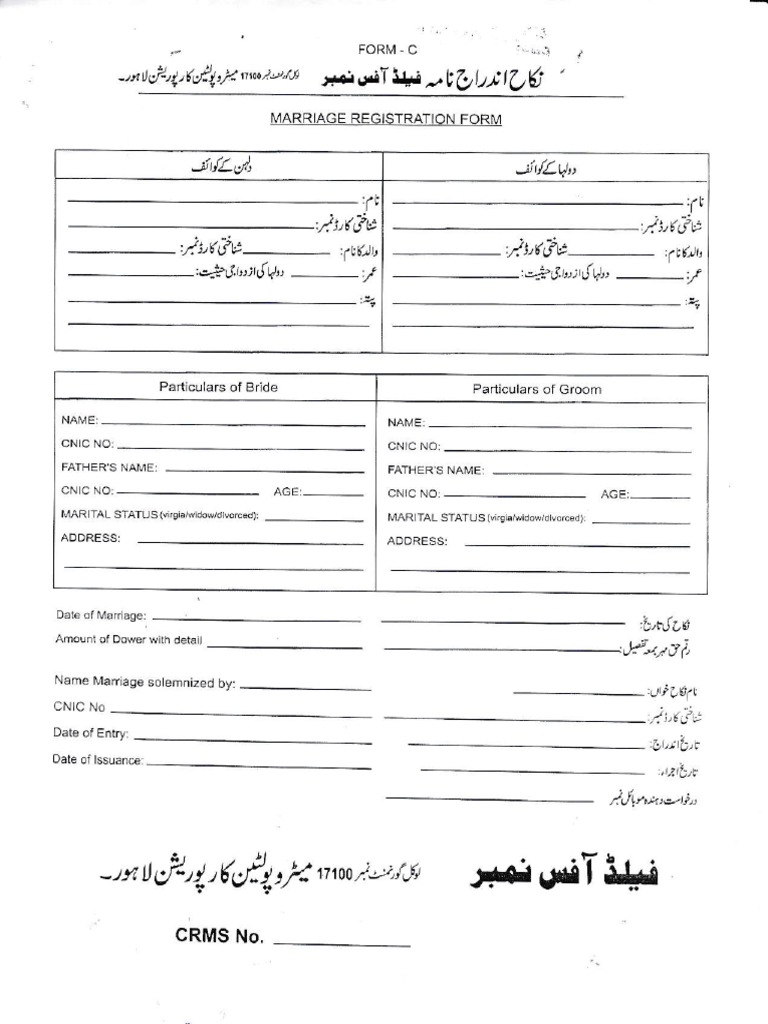 FORM - C
نکاح اندراج نامہ فیلڈ آفس نمبر لوکل گورنمنٹ نمبر 17100 میٹروپولیٹین کارپوریشن لاہور۔
MARRIAGE REGISTRATION FORM
دولہا کے کوائف
نام:
شناختی کارڈ نمبر:
والد کا نام: شناختی کارڈ نمبر:
عمر: دولہا کی ازدواجی حیثیت:
پتہ:
دلہن کے کوائف
نام:
شناختی کارڈ نمبر:
والد کا نام: شناختی کارڈ نمبر:
عمر: دولہا کی ازدواجی حیثیت:
پتہ:
Particulars of Bride
NAME:
CNIC NO:
FATHER'S NAME:
CNIC NO: AGE:
MARITAL STATUS (virgia/widow/divorced):
ADDRESS:
Particulars of Groom
NAME:
CNIC NO:
FATHER'S NAME:
CNIC NO: AGE:
MARITAL STATUS (virgia/widow/divorced):
ADDRESS:
Date of Marriage: نکاح کی تاریخ:
Amount of Dower with detail رقم حق مہر بمعہ تفصیل:
Name Marriage solemnized by: نام نکاح خواں:
CNIC No شناختی کارڈ نمبر:
Date of Entry: تاریخ اندراج:
Date of Issuance: تاریخ اجراء:
درخواست دہندہ موبائل نمبر
فیلڈ آفس نمبر لوکل گورنمنٹ نمبر 17100 میٹروپولیٹین کارپوریشن لاہور۔
CRMS No.